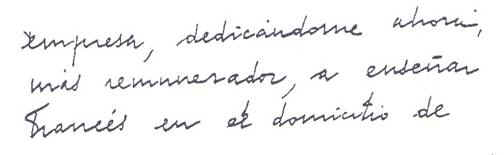 empresa, dedicándome ahora,
más remunerador, a enseñar
Francés en el domicilio de